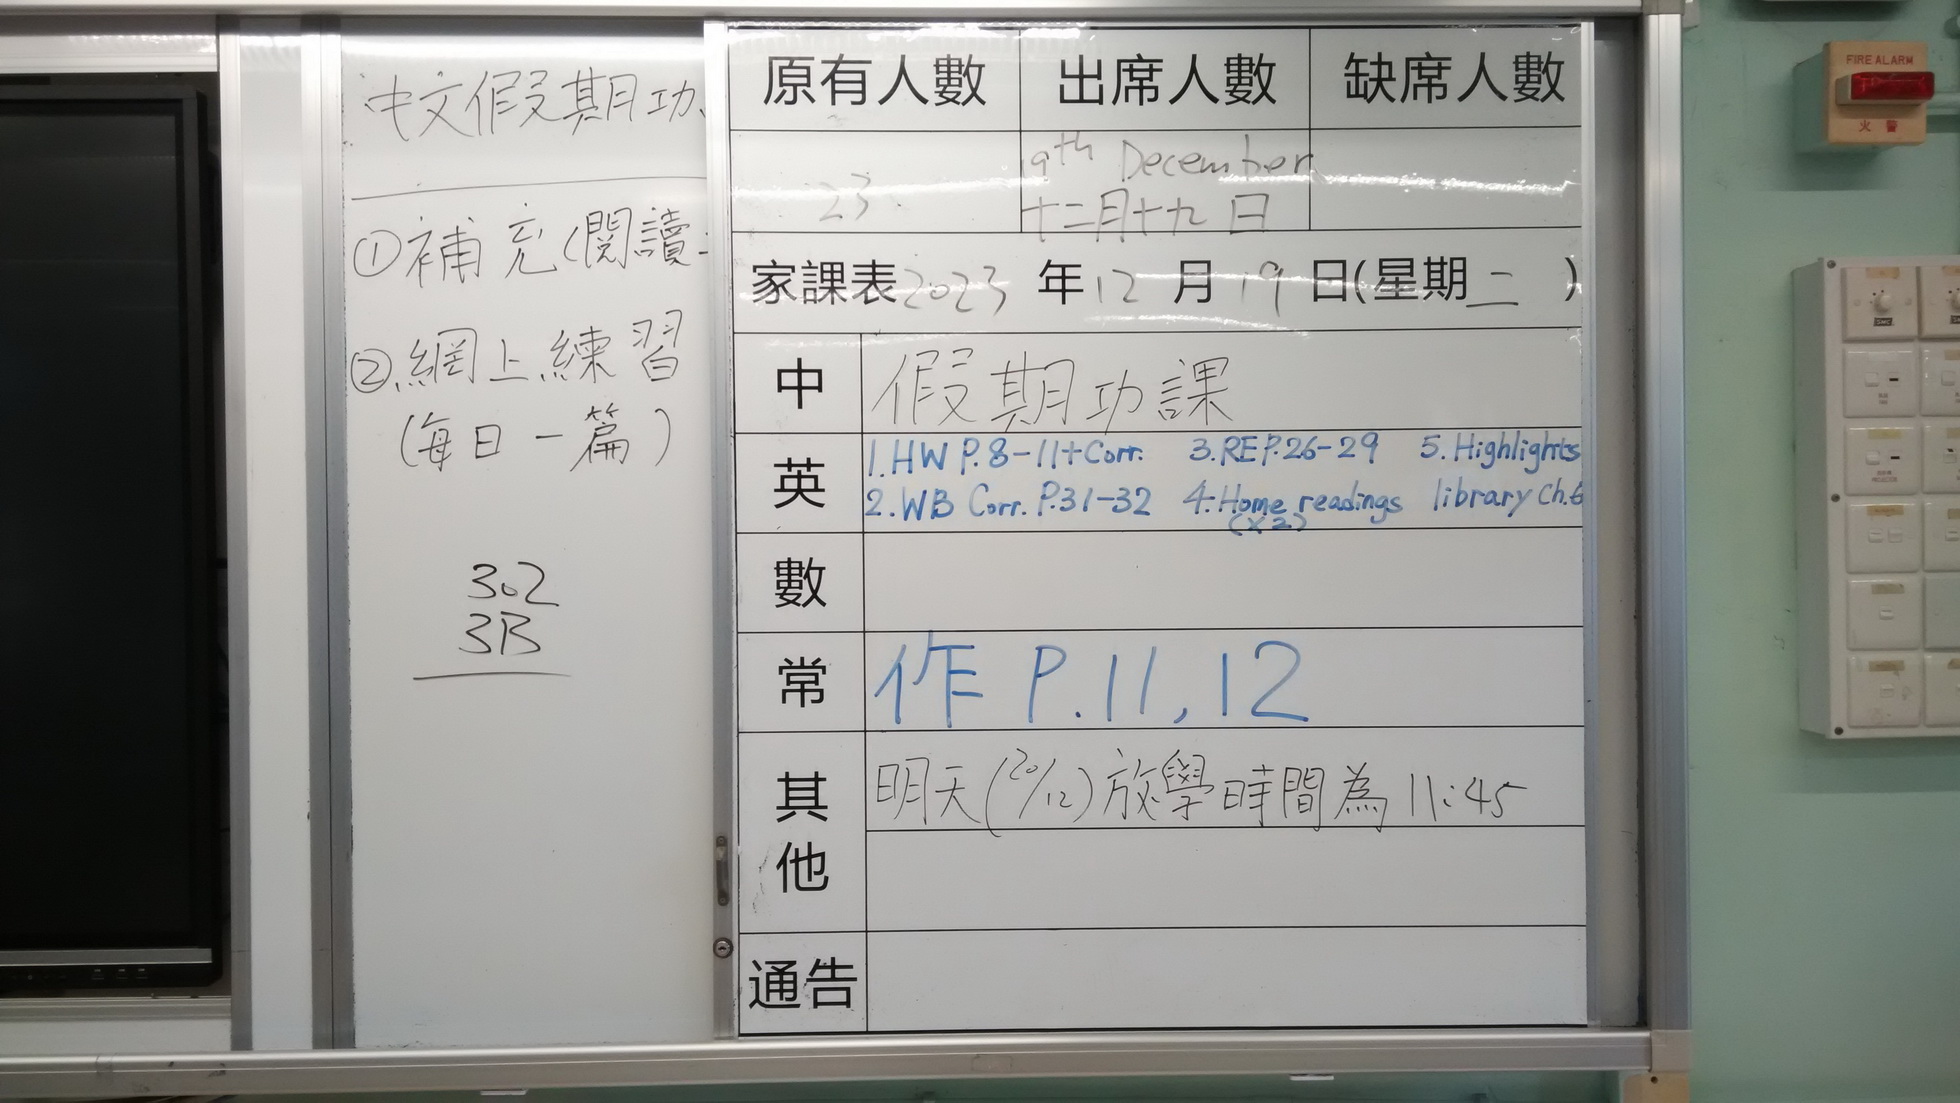 中文假期功
①補充(閱讀
②.網上練習
(每日一篇)
302
3B
原有人數 出席人數 缺席人數
23 19th December
十二月十九日
家課表2023年12月19日(星期二)
中 假期功課
英 1.HW P.8-11+Corr. 3.RE P.26-29 5.Highlights
2.WB Corr. P.31-32 4.Home readings library Ch.6
(x2)
數
常 作 P.11,12
其他 明天(20/12)放學時間為11:45
通告
FIRE ALARM
火警